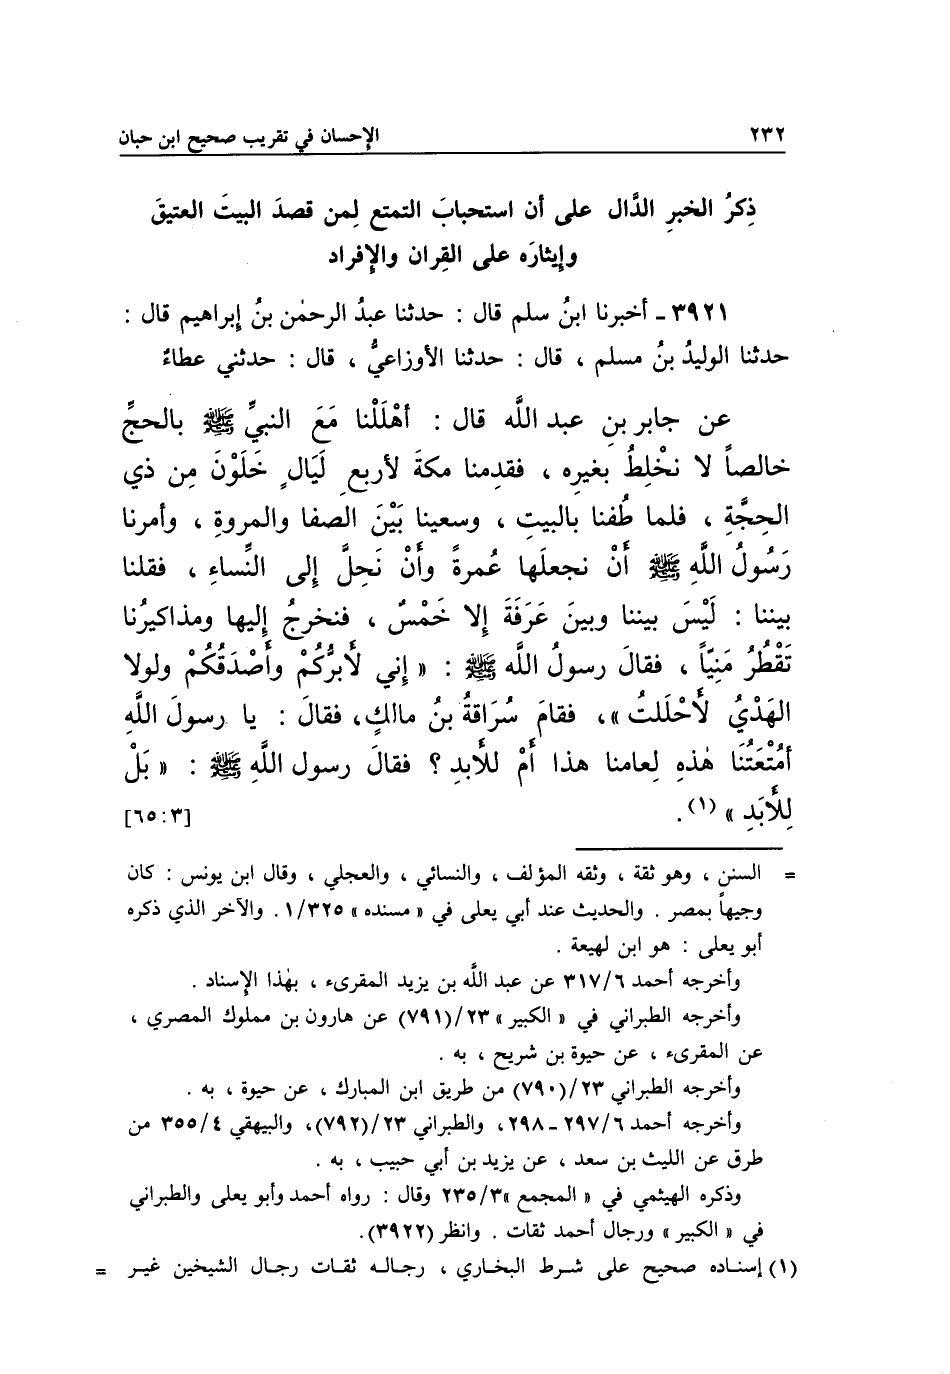 ٢٣٢ الإحسان في تقريب صحيح ابن حبان
ذِكرُ الخبرِ الدَّال على أن استحبابَ التمتع لِمن قصدَ البيتَ العتيقَ
وإيثارَه على القِران والإِفراد
٣٩٢١ - أخبرنا ابنُ سلم قال : حدثنا عبدُ الرحمٰن بنُ إبراهيم قال :
حدثنا الوليدُ بنُ مسلم ، قال : حدثنا الأوزاعيُّ ، قال : حدثني عطاءٌ
عن جابر بنِ عبد اللَّه قال : أَهْلَلْنا مَعَ النبيِّ ﷺ بالحجِّ
خالصاً لا نخْلِطُ بغيرِه ، فقدِمنا مكةَ لأربعِ لَيَالٍ خَلَوْنَ مِن ذي
الحِجَّةِ ، فلما طُفنا بالبيتِ ، وسعينا بَيْنَ الصفا والمروةِ ، وأمرنا
رَسُولُ اللَّهِ ﷺ أَنْ نجعلَها عُمرةً وأَنْ نَحِلَّ إلى النِّساءِ ، فقلنا
بيننا : لَيْسَ بيننا وبينَ عَرَفَةَ إلا خَمْسٌ ، فنخرجُ إليها ومذاكيرُنا
تَقْطُرُ مَنِيّاً ، فقالَ رسولُ اللَّه ﷺ : « إني لأَبرُّكُمْ وأَصْدَقُكُمْ ولولا
الهَدْيُ لأَحْلَلتُ »، فقامَ سُرَاقةُ بنُ مالكٍ، فقالَ : يا رسولَ اللَّهِ
أمُتْعَتُنَا هٰذهِ لِعامنا هذا أَمْ للأبدِ ؟ فقالَ رسول اللَّهِ ﷺ : « بَلْ
لِلأَبَدِ » (١) . [٣:٦٥]
= السنن ، وهو ثقة ، وثقه المؤلف ، والنسائي ، والعجلي ، وقال ابن يونس : كان
وجيهاً بمصر . والحديث عند أبي يعلى في « مسنده » ١/٣٢٥ . والآخر الذي ذكره
أبو يعلى : هو ابن لهيعة .
وأخرجه أحمد ٣١٧/٦ عن عبد اللَّه بن يزيد المقرىء ، بهٰذا الإِسناد .
وأخرجه الطبراني في « الكبير » ٢٣/(٧٩١) عن هارون بن مملوك المصري ،
عن المقرىء ، عن حيوة بن شريح ، به .
وأخرجه الطبراني ٢٣/(٧٩٠) من طريق ابن المبارك ، عن حيوة ، به .
وأخرجه أحمد ٢٩٧/٦ - ٢٩٨، والطبراني ٢٣/(٧٩٢)، والبيهقي ٣٥٥/٤ من
طرق عن الليث بن سعد ، عن يزيد بن أبي حبيب ، به .
وذكره الهيثمي في « المجمع »٢٣٥/٣ وقال : رواه أحمد وأبو يعلى والطبراني
في « الكبير » ورجال أحمد ثقات . وانظر (٣٩٢٢).
(١) إسناده صحيح على شرط البخاري ، رجاله ثقات رجال الشيخين غير =